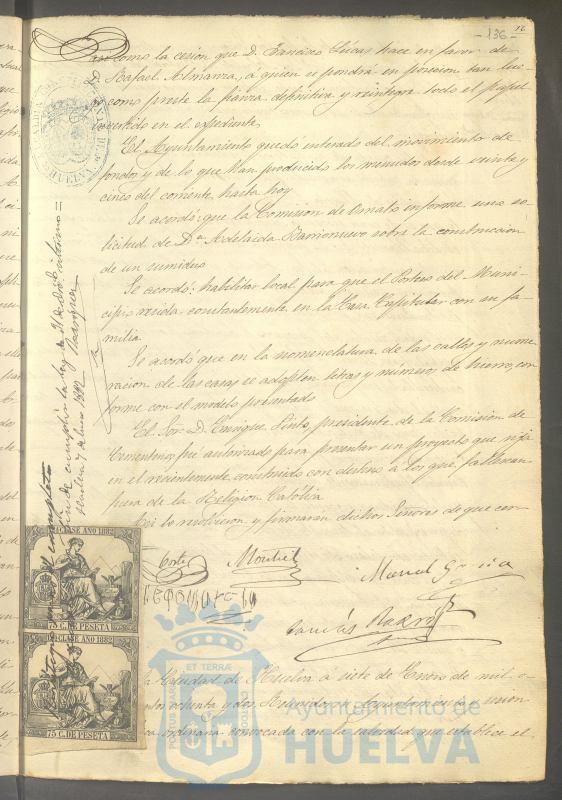 -136-
12
así como la cesión que D. Francisco Vécas hace en favor de
D. Rafael Almanza, á quien se pondrá en posesion tan lue-
go como preste la fianza definitiva y reintegre todo el papel
invertido en el expediente.
El Ayuntamiento quedó enterado del movimiento de
fondos y de lo que han producido los menudos desde veinte y
cinco del corriente hasta hoy
Se acordó: que la Comision de Ornato informe una so-
licitud de D.ª Adelaida Barrionuevo sobre la construccion
de un sumidero
Se acordó: habilitar local para que el Portero del Muni-
cipio resida constantemente en la Casa Capitular con su fa-
milia.
Se acordó que en la nomenclatura de las calles y nume-
racion de las casas se adopten letras y números de hierro, con-
forme con el modelo presentado
El Sor. D. Enrique Pinto, presidente de la Comision de
Cementerio, fue autorizado para presentar un proyecto que rija
en el recientemente construido con destino á los que fallezcan
fuera de la Religion Católica
Así lo resolvieron y firmarán dichos Señores de que cer-
Corte
Montiel
Manuel García
Tomás
la Ciudad de Huelva á siete de Enero de mil o-
ochenta y dos. Reunidos
ordinaria convocada con la
que establece el
de cumplir la ley
Huelva 7 de Enero 1882
HUELVA
CLASE AÑO 1882
75 C. DE PESETA
CLASE AÑO 1882
75 C. DE PESETA
PORTUS MARIS ET TERRÆ CUSTODIA
Ayuntamiento de
HUELVA